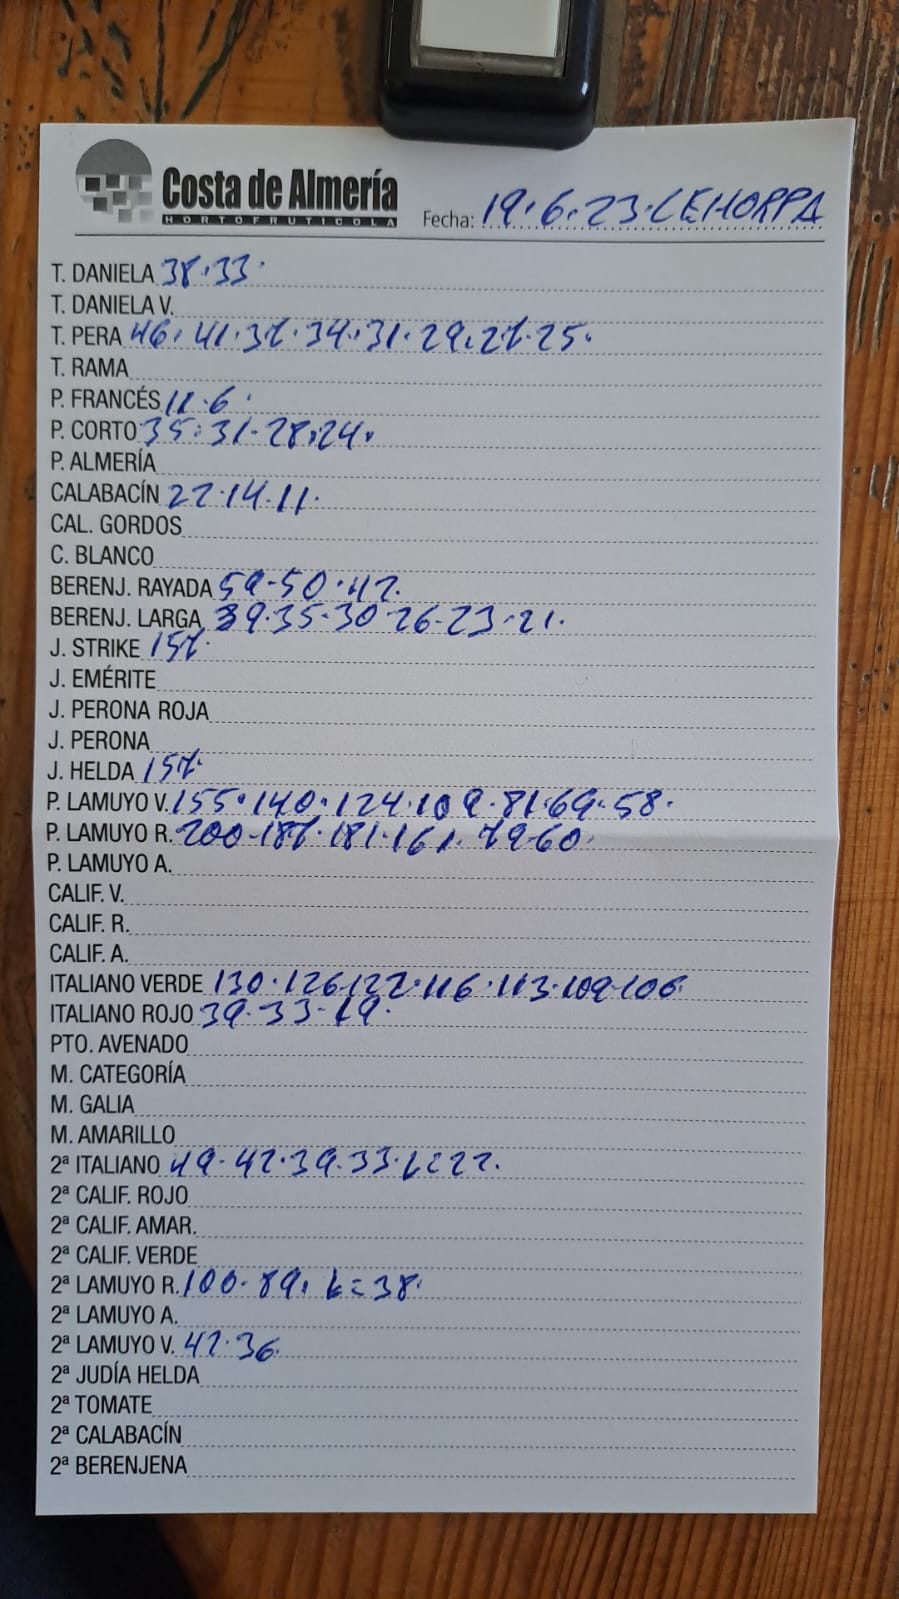 Costa de Almería
HORTOFRUTICOLA
Fecha: 19.6.23.CEHORPA
T. DANIELA 38.33.
T. DANIELA V.
T. PERA 46.41.37.34.31.29.27.25.
T. RAMA
P. FRANCÉS 11.6.
P. CORTO 35.31.28.24.
P. ALMERÍA
CALABACÍN 22.14.11.
CAL. GORDOS
C. BLANCO
BERENJ. RAYADA 59-50.42.
BERENJ. LARGA 39.35-30-26-23-21.
J. STRIKE 157.
J. EMÉRITE
J. PERONA ROJA
J. PERONA
J. HELDA 157.
P. LAMUYO V. 155.140.124.109.81.69-58.
P. LAMUYO R. 200-187.181.161.79-60.
P. LAMUYO A.
CALIF. V.
CALIF. R.
CALIF. A.
ITALIANO VERDE 130.126.122.116.113.109-106.
ITALIANO ROJO 39-33-19.
PTO. AVENADO
M. CATEGORÍA
M. GALIA
M. AMARILLO
2ª ITALIANO 49-42.39.33. L=22.
2ª CALIF. ROJO
2ª CALIF. AMAR.
2ª CALIF. VERDE
2ª LAMUYO R. 100-89. L=38.
2ª LAMUYO A.
2ª LAMUYO V. 42.36.
2ª JUDÍA HELDA
2ª TOMATE
2ª CALABACÍN
2ª BERENJENA